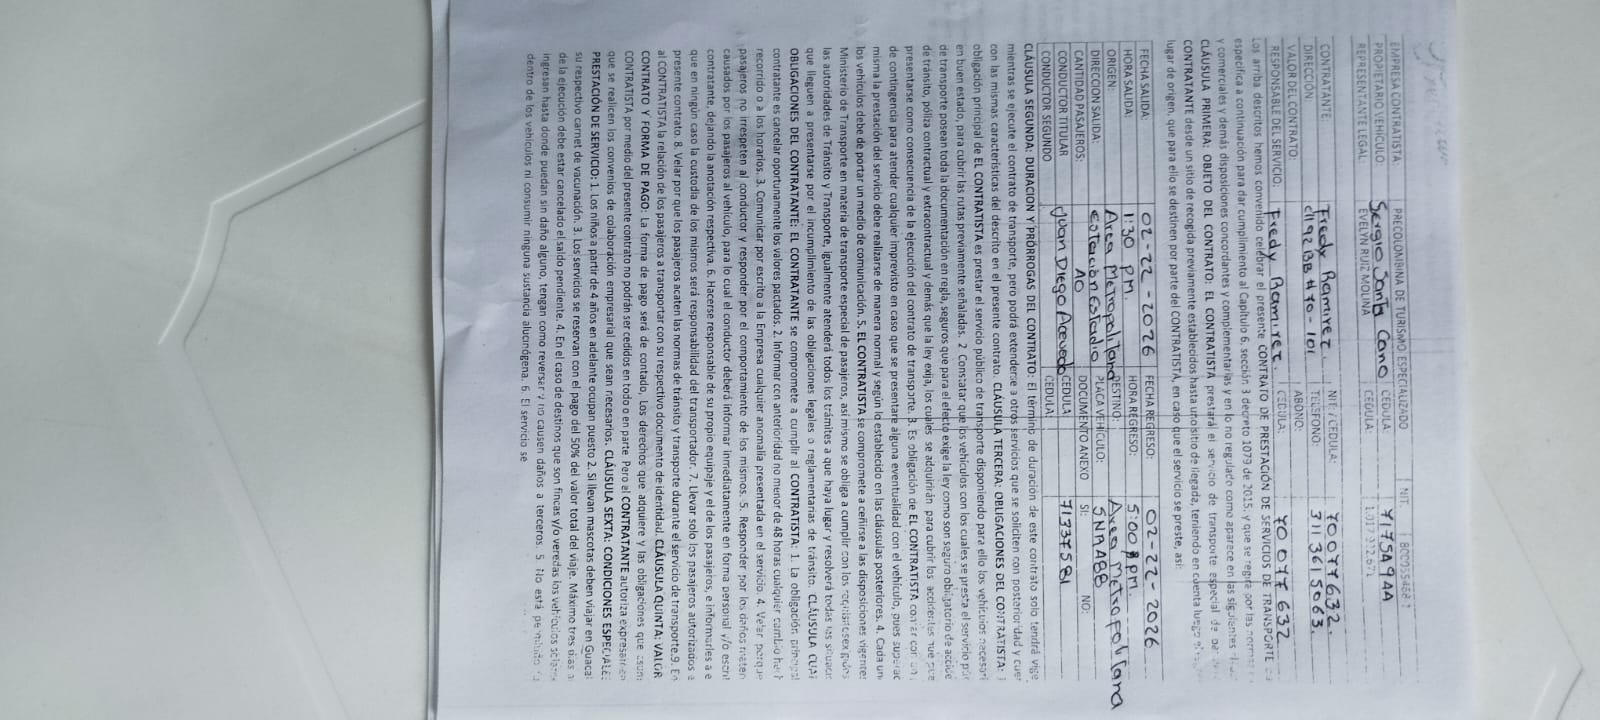 EMPRESA CONTRATISTA: PRECOLOMBINA DE TURISMO ESPECIALIZADO NIT.
PROPIETARIO VEHICULO: Sergio Santa Cano CEDULA:
REPRESENTANTE LEGAL: EVELYN RUIZ MOLINA CEDULA:
CONTRATANTE: Fredy Ramirez. NIT. / CEDULA: 70077632.
DIRECCIÓN: TELEFONO: 3113615063.
VALOR DEL CONTRATO: ABONO:
RESPONSABLE DEL SERVICIO: Fredy Ramirez. CEDULA: 70077632
Los arriba descritos hemos convenido celebrar el presente CONTRATO DE PRESTACIÓN DE SERVICIOS DE TRANSPORTE
especifica a continuación para dar cumplimiento al Capítulo 6. sección 3 decreto 1079 de 2015. y que se regirá por las
y comerciales y demás disposiciones concordantes y complementarias y en lo no regulado como aparece en las siguientes
CLÁUSULA PRIMERA: OBJETO DEL CONTRATO: EL CONTRATISTA prestará el servicio de transporte especial de
CONTRATANTE desde un sitio de recogida previamente establecidos hasta un sitio de llegada, teniendo en cuenta
lugar de origen, que para ello se destinen por parte del CONTRATISTA, en caso que el servicio se preste, así:
FECHA SALIDA: 02-22-2026 FECHA REGRESO: 02-22-2026
HORA SALIDA: 1:30 PM. HORA REGRESO: 5:00 pm.
ORIGEN: Area Metropolitana DESTINO: Area metropolitana
DIRECCION SALIDA: Estación Estadio PLACA VEHÍCULO: SNA488
CANTIDAD PASAJEROS: 40 DOCUMENTO ANEXO SI: NO:
CONDUCTOR TITULAR Juan Diego Acevedo CEDULA 71337581
CONDUCTOR SEGUNDO CEDULA:
CLÁUSULA SEGUNDA: DURACION Y PRÓRROGAS DEL CONTRATO: El término de duración de este contrato solo tendrá
mientras se ejecute el contrato de transporte, pero podrá extenderse a otros servicios que se soliciten con posterioridad y
con las mismas características del descrito en el presente contrato. CLÁUSULA TERCERA: OBLIGACIONES DEL CONTRATISTA:
obligación principal de EL CONTRATISTA es prestar el servicio público de transporte disponiendo para ello los vehículos
en buen estado, para cubrir las rutas previamente señaladas. 2 Constatar que los vehículos con los cuales se presta el servicio
de transporte posean toda la documentación en regla, seguros que para el efecto exige la ley como son seguro obligatorio de
de tránsito, póliza contractual y extracontractual y demás que la ley exija, los cuales se adquirirán para cubrir los accidentes que
presentarse como consecuencia de la ejecución del contrato de transporte. 3. Es obligación de EL CONTRATISTA contar con
de contingencia para atender cualquier imprevisto en caso que se presentare alguna eventualidad con el vehículo, pues
misma la prestación del servicio debe realizarse de manera normal y según lo establecido en las cláusulas posteriores. 4. Cada
los vehículos debe de portar un medio de comunicación. 5. EL CONTRATISTA se compromete a ceñirse a las disposiciones
Ministerio de Transporte en materia de transporte especial de pasajeros, así mismo se obliga a cumplir con los
las autoridades de Tránsito y Transporte, igualmente atenderá todos los trámites a que haya lugar y resolverá todas las
que lleguen a presentarse por el incumplimiento de las obligaciones legales o reglamentarias de tránsito. CLÁUSULA
OBLIGACIONES DEL CONTRATANTE: EL CONTRATANTE se compromete a cumplir al CONTRATISTA: 1. La obligación
contratante es cancelar oportunamente los valores pactados. 2. Informar con anterioridad no menor de 48 horas cualquier cambio
recorrido o a los horarios. 3. Comunicar por escrito a la Empresa cualquier anomalía presentada en el servicio. 4. Velar
pasajeros no irrespeten al conductor y responder por el comportamiento de los mismos. 5. Responder por los daños
causados por los pasajeros al vehículo, para lo cual el conductor deberá informar inmediatamente en forma personal y/o
contratante, dejando la anotación respectiva. 6. Hacerse responsable de su propio equipaje y el de los pasajeros, e informarles
que en ningún caso la custodia de los mismos será responsabilidad del transportador. 7. Llevar solo los pasajeros autorizados
presente contrato. 8. Velar por que los pasajeros acaten las normas de tránsito y transporte durante el servicio de transporte.9.
al CONTRATISTA la relación de los pasajeros a transportar con su respectivo documento de identidad. CLÁUSULA QUINTA: VALOR
CONTRATO Y FORMA DE PAGO: La forma de pago será de contado, Los derechos que adquiere y las obligaciones que
CONTRATISTA por medio del presente contrato no podrán ser cedidos en todo o en parte. Pero al CONTRATANTE autoriza
que se realicen los convenios de colaboración empresarial que sean necesarios. CLÁUSULA SEXTA: CONDICIONES
PRESTACIÓN DE SERVICIO: 1. Los niños a partir de 4 años en adelante ocupan puesto 2. Si llevan mascotas deben viajar en
su respectivo carnet de vacunación. 3. Los servicios se reservan con el pago del 50% del valor total del viaje. Máximo tres días
de la ejecución debe estar cancelado el saldo pendiente. 4. En el caso de destinos que son fincas y/o veredas los vehículos
ingresan hasta donde puedan, sin daño alguno, tengan como reversar y no causen daños a terceros. 5 No está
dentro de los vehículos ni consumir ninguna sustancia alucinógena. 6 El servicio se